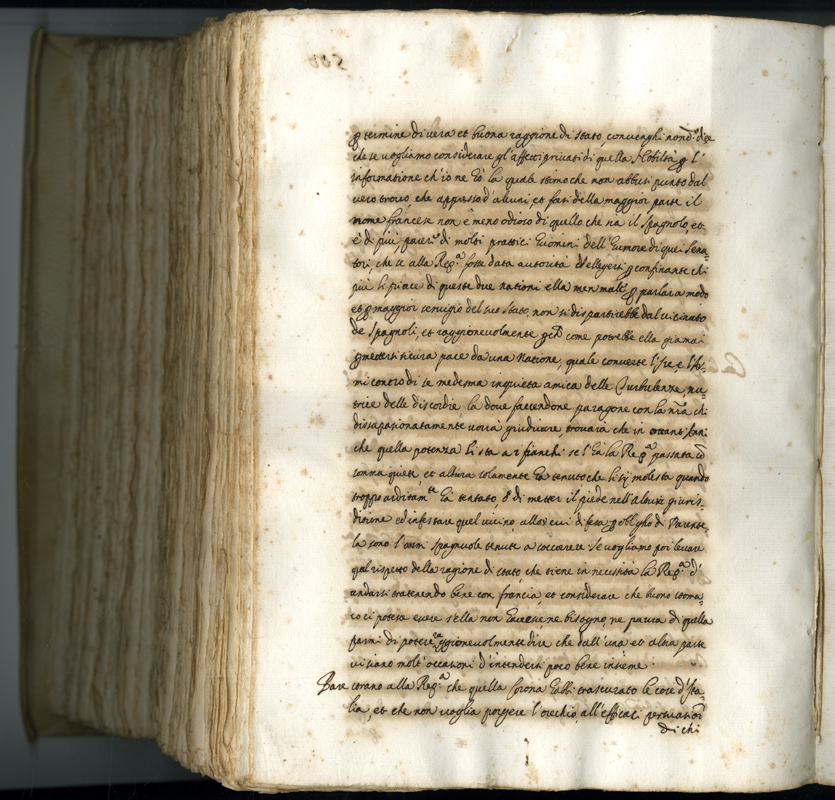 termine di vera et buona raggione di stato, convenghi
che se vogliamo considerare gl'affetti privati di quella Nobiltà l'
informatione ch'io ne hò la quale stimo che non abbusi punto dal
vero trovo, che appresso d'alcuni, et forsi della maggior parte il
nome francese non è meno odioso di quello che sia il Spagnolo, et
è di più di molti prattici huomini dell'humore di quei Sena-
tori, che se alla Rep.a fosse data autorità d'ellegersi confinante chi
più li piace di queste due nationi ella parlar a modo
et maggior servigio del suo stato, non si dispartirebbe dal vicinato
de Spagnoli, et raggionevolmente come potrebbe ella giamai
sicura pace da una Natione, quale converte l'ire, e l'Ar-
mi contro di se medesma inquieta amica delle turbulenze, nu-
trice delle discordie la dove facendone paragone con la n̄ra chi
dissapasionatamente vorrà giudicare, trovarà che in Anni
che quella potenza li sta a i fianchi se l'hà la Rep.a passata
somma quiete et allora solamente hà tenuto che li sij molesta quando
troppo arditam.te hà tentato, ò di metter il piede nell'altrui giuris-
ditione ed infestare quel vicino, alla cui difesa obligho di Parente-
la sono l'armi spagnuole tenute a soccorrere se vogliamo poi levare
quel rispetto della ragione di stato, che tiene in necessità la Rep.a d'
andarsi trattenendo bene con francia, et considerare che buono stoma-
co ci potesse avere s'ella non havesse ne bisogno, ne paura di quella
parmi di potere raggionevolmente dire che dall'una et altra parte
vi siano molt'occasioni d'intendersi poco bene insieme.
Pare strano alla Rep.a che quella Corona habbi trascurato le cose d'Ita-
lia, et che non voglia porgere l'orecchio all'efficaci persuasioni
di chi